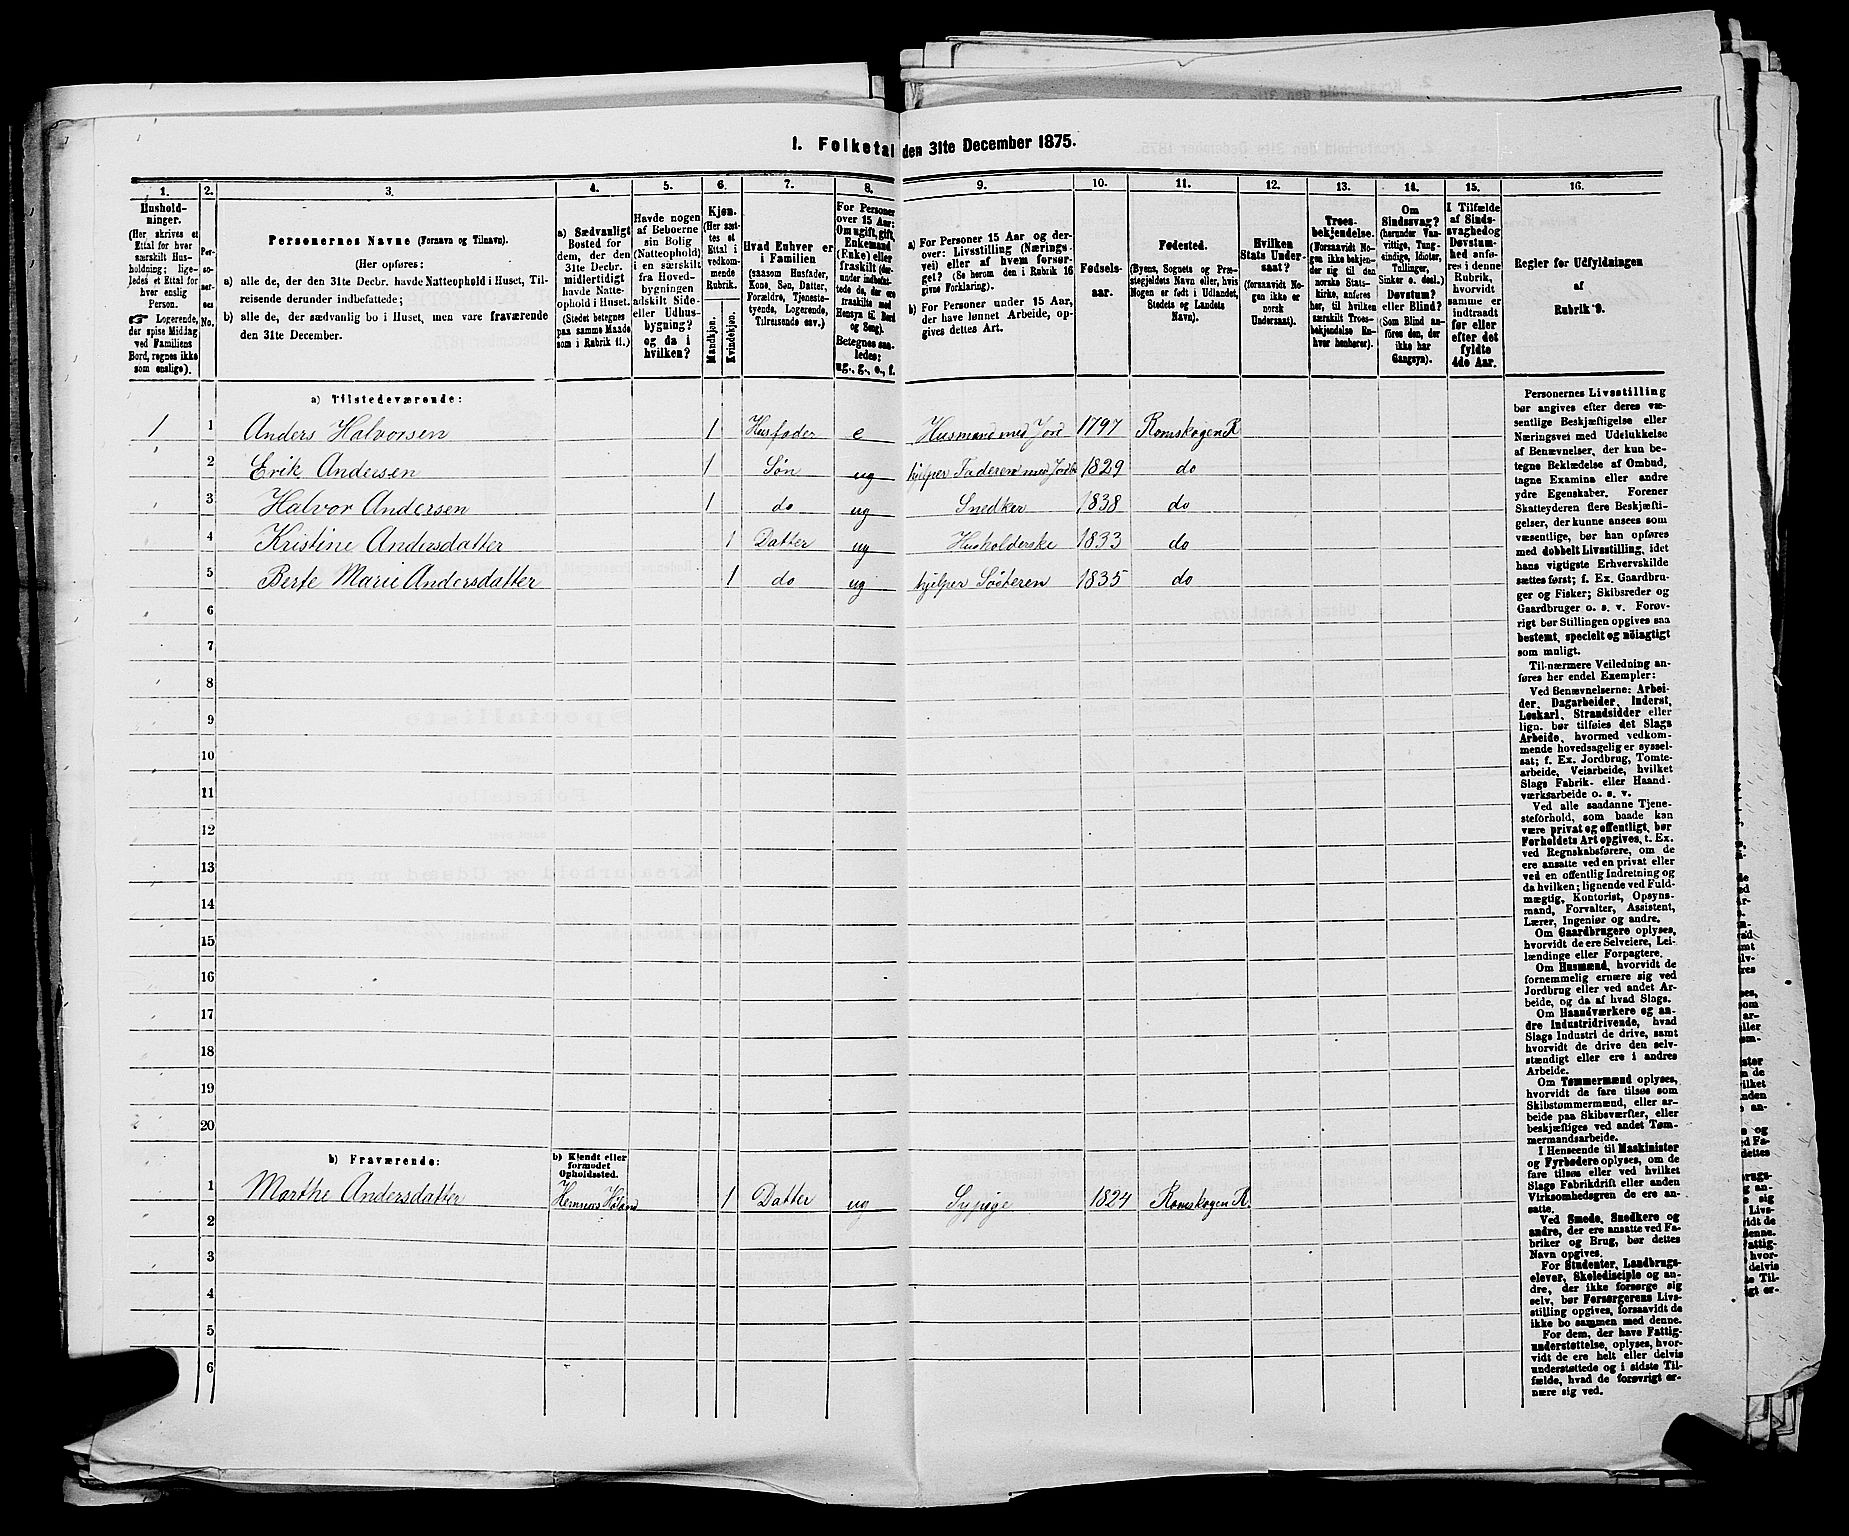 I. Folketal den 31te December 1875.
1.
2.
3.
4.
5.
6.
7.
8.
9.
10.
11.
12.
13.
14.
15.
16.
Hushold-
ninger.
(Her skrives et
Ettal for hver
særskilt Hus-
holdning; lige-
ledes et Ettal for
hver enslig
Person.
☞ Logerende,
der spise Middag
ved Familiens
Bord, regnes ikke
som enslige).
Per-
soner-
nes
No.
Personernes Navne (Fornavn og Tilnavn).
(Her opføres:
a) alle de, der den 31te Decbr. havde Natteophold i Huset, Til-
reisende derunder indbefattede;
b) alle de, der sædvanlig bo i Huset, men vare fraværende
den 31te December.
a) Sædvanligt
Bosted for
dem, der den
31te Decbr.
midlertidigt
havde Natte-
ophold i Huset.
(Stedet betegnes
paa samme Maade
som i Rubrik 11.)
Havde nogen
af Beboerne
sin Bolig
(Natteophold)
i en særskilt
fra Hoved-
bygningen
adskilt Side-
eller Udhus-
bygning?
og da i
hvilken?
Kjøn.
(Her sæt-
tes et
Ettal i
vedkom-
mende
Rubrik.
Mandkjøn.
Kvindekjøn.
Hvad Enhver er
i Familien
(saasom Husfader,
Kone, Søn, Datter,
Forældre, Tjeneste-
tyende, Logerende,
Tilreisende osv.)
For Personer
over 15 Aar:
Om ugift, gift,
Enkemand
(Enke) eller
fraskilt (der-
under indbefat-
tede de, der ere
fraskilte med
Hensyn til Bord
og Seng).
Betegnes saa-
ledes:
ug., g., e., f.
a) For Personer 15 Aar og der-
over: Livsstilling (Nærings-
vei) eller af hvem forsør-
get? (Se herom den i Rubrik 16
givne Forklaring).
b) For Personer under 15 Aar,
der have lønnet Arbeide, op-
gives dettes Art.
Fødsels-
aar.
Fødested.
(Byens, Sognets og Præ-
stegjeldets Navn eller, hvis
Nogen er født i Udlandet,
Stedets og Landets
Navn).
Hvilken
Stats Under-
saat?
(forsaavidt No-
gen ikke er
norsk
Undersaat).
Troes-
bekjendelse.
(Forsaavidt No-
gen ikke bekjen-
der sig til den
norske Stats-
kirke, anføres
her, til hvilken
særskilt Troes-
bekjendelse En-
hver henhører).
Om
Sindssvag?
(herunder Van-
vittige, Tung-
sindige, Idioter,
Tullinger,
Sinker o. desl.)
Døvstum?
eller Blind?
(Som Blind an-
føres den, der
ikke har
Gangsyn).
I Tilfælde
af Sinds-
svaghed og
Døvstum-
hed anfø-
res i denne
Rubrik,
hvorvidt
samme er
indtraadt
før eller
efter det
fyldte
4de Aar.
Regler for Udfyldningen
af
Rubrik 9.
a) Tilstedeværende:
1 1 Anders Halvorsen 1 Husfader e Husmand med Jord 1797 Romskogen R
2 Erik Andersen 1 Søn ug hjelper Faderen med Jordbr 1829 do
3 Halvor Andersen 1 do ug Snedker 1838 do
4 Kristine Andersdatter 1 Datter ug Husholderske 1833 do
5 Berte Marie Andersdatter 1 do ug hjelper Søsteren 1835 do
6
7
8
9
10
11
12
13
14
15
16
17
18
19
20
b) Fraværende:
b) Kjendt eller
formodet
Opholdssted.
1 Marthe Andersdatter Hemnes Høland 1 Datter ug Sypige 1824 Romskogen R.
2
3
4
5
6
Personernes Livsstilling
bør angives efter deres væ-
sentlige Beskjæftigelse eller
Næringsvei med Udelukkelse
af Benævnelser, der kun be-
tegne Beklædelse af Ombud,
tagne Examina eller andre
ydre Egenskaber. Forener
Skatteyderen flere Beskjæfti-
gelser, der kunne ansees som
væsentlige, bør han opføres
med dobbelt Livsstilling, idet
hans vigtigste Erhvervskilde
sættes først; f. Ex. Gaardbru-
ger og Fisker; Skibsreder og
Gaardbruger o. s. v. Forøv-
rigt bør Stillingen opgives saa
bestemt, specielt og nöiagtigt
som muligt.
Til nærmere Veiledning an-
føres her endel Exempler:
Ved Benævnelserne: Arbei-
der, Dagarbeider, Inderst,
Løskarl, Strandsidder eller
lign. bør tilføies det Slags
Arbeide, hvormed vedkom-
mende hovedsagelig er syssel-
sat; f. Ex. Jordbrug, Tomte-
arbeide, Veiarbeide, hvilket
Slags Fabrik- eller Haand-
værksarbeide o. s. v.
Ved alle saadanne Tjene-
steforhold, som baade kan
være privat og offentligt, bør
Forholdets Art opgives, t. Ex.
ved Regnskabsførere, om de
ere ansatte ved en privat eller
ved en offentlig Indretning og
da hvilken; lignende ved Fuld-
mægtig, Kontorist, Opsyns-
mand, Forvalter, Assistent,
Lærer, Ingeniør og andre.
Om Gaardbrugere oplyses,
hvorvidt de ere Selveiere, Lei-
lændinge eller Forpagtere.
Om Husmænd, hvorvidt de
fornemmelig ernære sig ved
Jordbrug eller ved andet Ar-
beide, og da af hvad Slags.
Om Haandværkere og an-
dre Industridrivende, hvad
Slags Industri de drive, samt
hvorvidt de drive den selv-
stændigt eller ere i andres
Arbeide.
Om Tømmermænd oplyses,
hvorvidt de fare tilsøs som
Skibstømmermænd, eller ar-
beide paa Skibsværfter, eller
beskjæftiges ved andet Tøm-
mermandsarbeide.
I Henseende til Maskinister
og Fyrbødere oplyses, om de
fare tilsøs eller ved hvilket
Slags Fabrikdrift eller anden
Virksomhedsgren de ere an-
satte.
Ved Smede, Snedkere og
andre, der ere ansatte ved Fa-
briker og Brug, bør dettes
Navn opgives.
For Studenter, Landbrugs-
elever, Skoledisciple og an-
dre, der ikke forsørge sig
selv, bør Forsørgerens Livs-
stilling opgives, forsaavidt de
ikke bo sammen med denne.
For dem, der have Fattig-
understøttelse, oplyses, hvor-
vidt de ere helt eller delvis
understøttede og i sidste Til-
fælde, hvad de forøvrigt er-
nære sig ved.